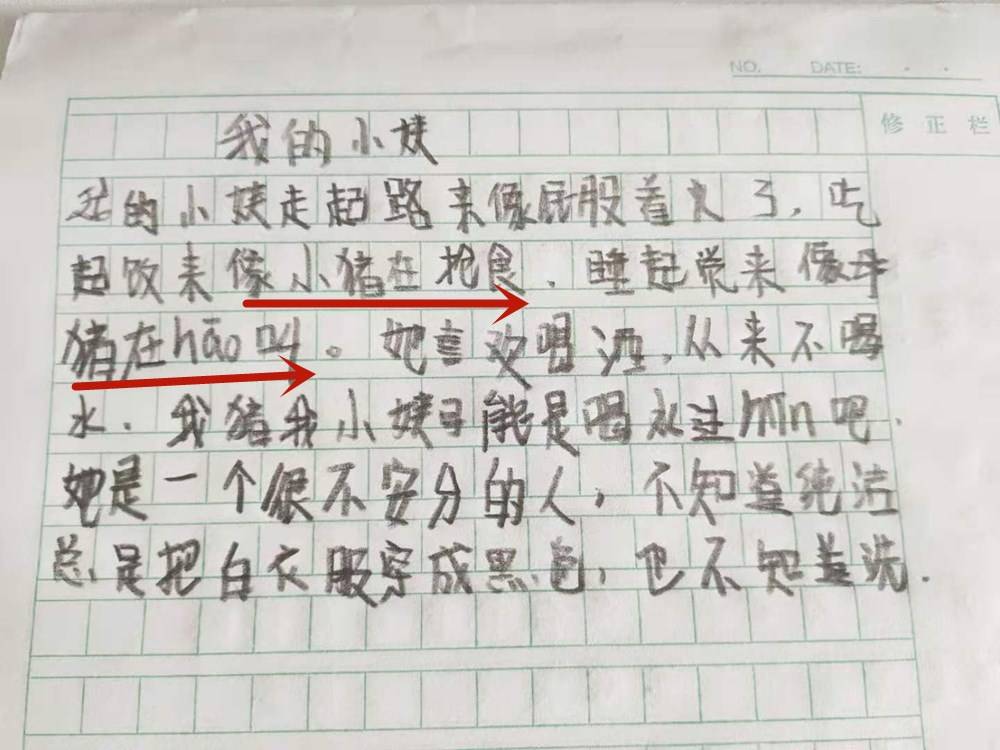 NO.        DATE:    ·    ·
修 正 栏
我的小妹
我的小妹走起路来像屁股着火了,吃
起饭来像小猪在抢食.睡起觉来像
猪在hāo叫。她喜欢喝酒,从来不喝
水.我猜我小妹子能是喝水过mǐn吧.
她是一个很不安分的人,不知道纯洁
总是把白衣服穿成黑色,也不知道洗.